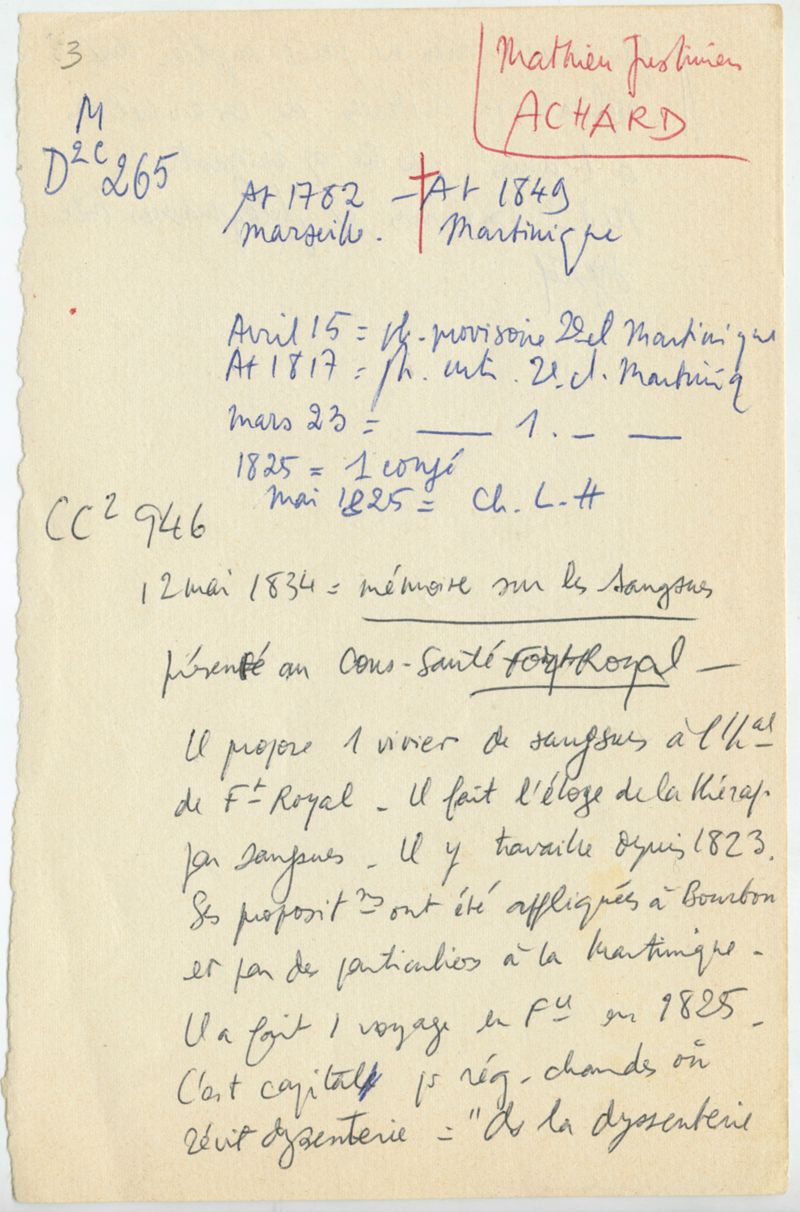 3
Mathieu Justinien
ACHARD
M
D2C 265
At 1782 – † At 1849
Marseille. Martinique
Avril 15 = ph. provisoire 2e cl Martinique
At 1817 = ph. entr. 2e cl. Martiniq
Mars 23 = — 1. – —
1825 = 1 congé
Mai 1825 = Ch. L-H
CC2 946
12 mai 1834 = mémoire sur les sangsues
présenté au Cons-Santé Fort-Royal —
Il propose 1 vivier de sangsues à l'hal
de Ft Royal – Il fait l'éloge de la thérap.
par sangsues – Il y travaille depuis 1823.
Ses propositns ont été appliquées à Bourbon
et par des particuliers à la Martinique –
Il a fait 1 voyage en Fce en 1825 –
C'est capital pr rég. chaudes où
sévit dyssenterie = "ds la dyssenterie